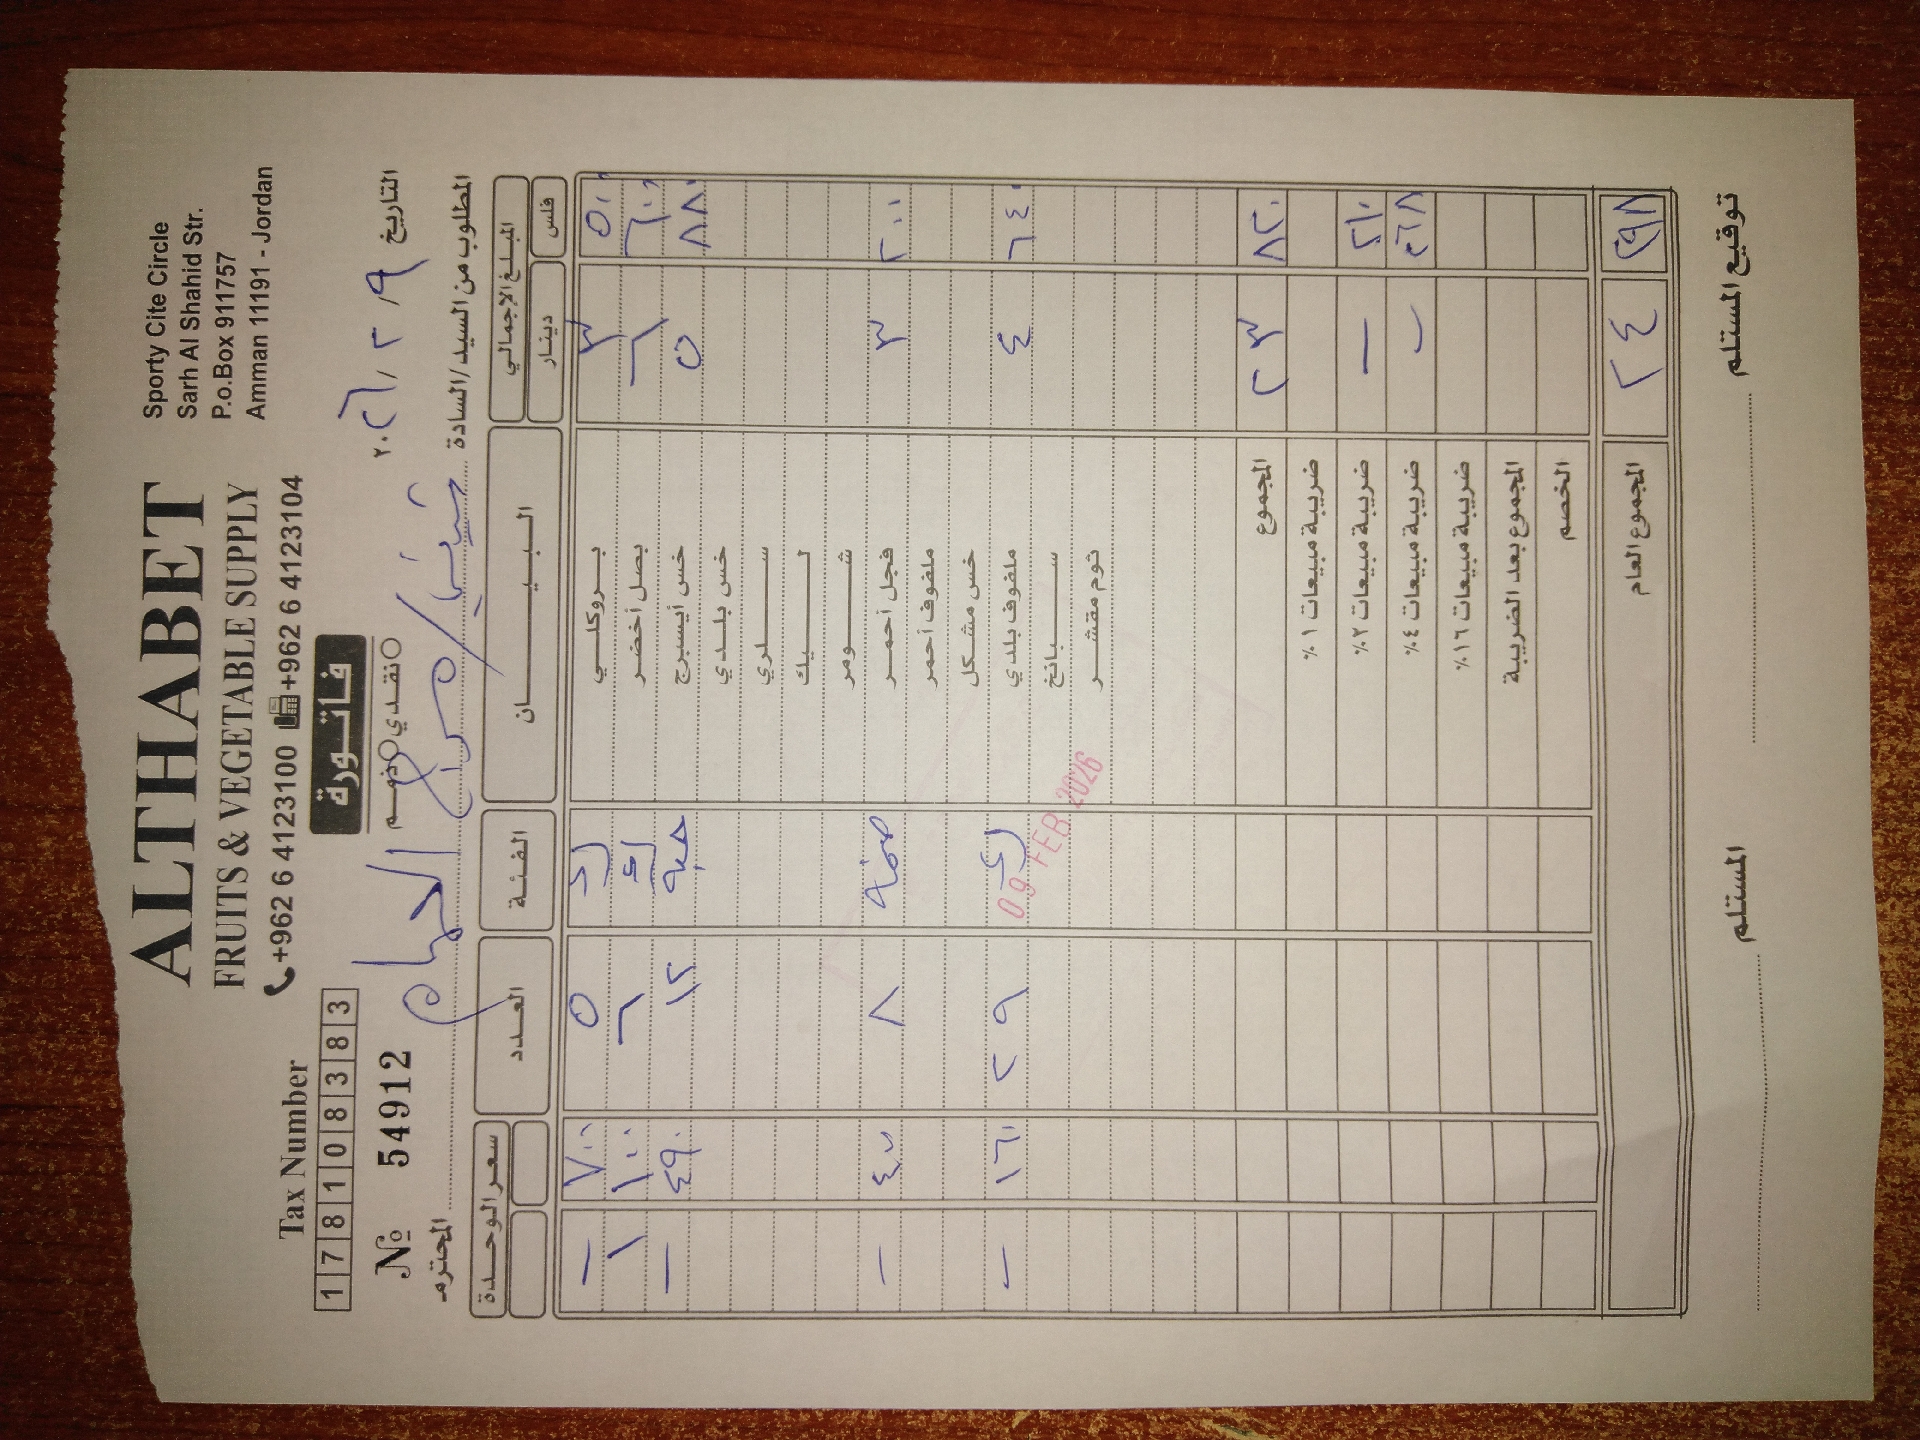 ALTHABET
FRUITS & VEGETABLE SUPPLY
+962 6 4123100 +962 6 4123104
Sporty Cite Circle
Sarh Al Shahid Str.
P.o.Box 911757
Amman 11191 - Jordan
Tax Number
178108383
فاتورة
نقدي ذمم
№ 54912
التاريخ ٩ / ٢ / ٢٠٢٦
المطلوب من السيد/السادة
المحترم
المبلغ الإجمالي البيــان الفئة العدد سعر الوحدة
فلس دينار
بروكلي ٥ ٧٠٠ -
بصل أخضر ٦٠٠ - ٦ ١٠٠
خس أيسبرج ٨٨٠ ٥ حبة ١٢ ٤٩٠ -
خس بلدي
سلري
ليك
شومر
فجل أحمر ٢٠٠ ٣ ٨ ٤٠٠ -
ملفوف أحمر
خس مشكل
ملفوف بلدي ٦٤٠ ٤ ٢٩ ١٦٠ -
سبانخ
ثوم مقشر
09 FEB 2026
المجموع ٨٢٠ ٢٣
ضريبة مبيعات ١٪
ضريبة مبيعات ٢٪ ٢١٠ -
ضريبة مبيعات ٤٪ -
ضريبة مبيعات ١٦٪
المجموع بعد الضريبة
الخصم
المجموع العام ٢٤
توقيع المستلم
المستلم